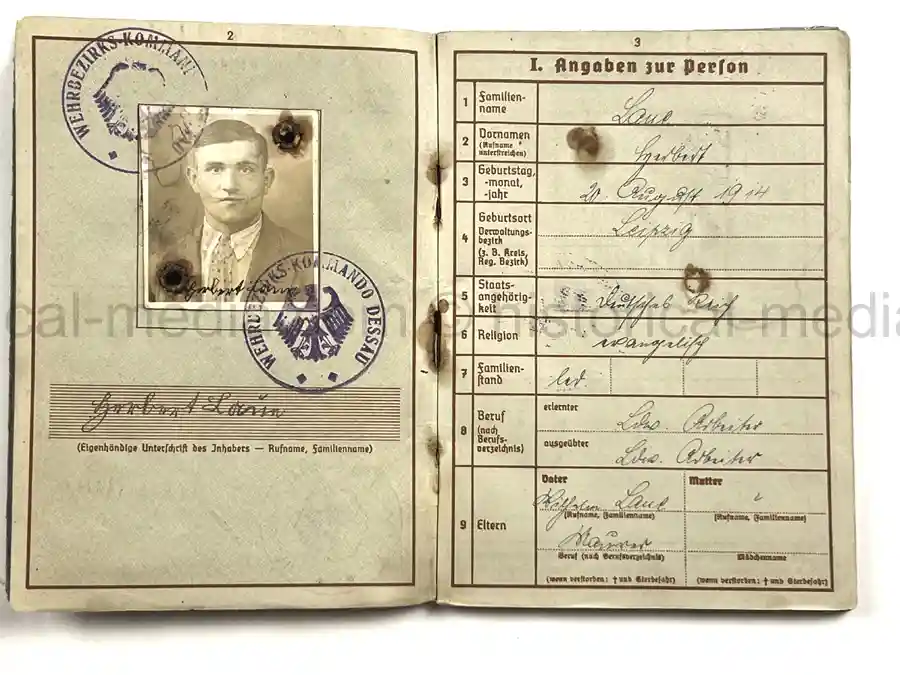 2
WEHRBEZIRKS-KOMMAN
WEHRBEZIRKS-KOMMANDO DESSAU
Herbert
(Eigenhändige Unterschrift des Inhabers — Rufname, Familienname)
3
I. Angaben zur Person
1 Familien-
name
2 Vornamen Herbert
(Rufname
unterstreichen)
3 Geburtstag,
-monat,
-jahr
20. August 1914
4 Geburtsort Leipzig
Verwaltungs-
bezirk
(z. B. Kreis,
Reg. Bezirk)
5 Staats-
angehörig-
keit
Deutsches Reich
6 Religion evangelisch
7 Familien-
stand
led.
8 Beruf
(nach
Berufs-
verzeichnis)
erlernter Ldw. Arbeiter
ausgeübter Ldw. Arbeiter
9 Eltern
Vater
Wilhelm
(Rufname, Familienname)
Maurer
Beruf (nach Berufsverzeichnis)
(wenn verstorben: † und Sterbejahr)
Mutter
(Rufname, Familienname)
Mädchenname
(wenn verstorben: † und Sterbejahr)
historical-media